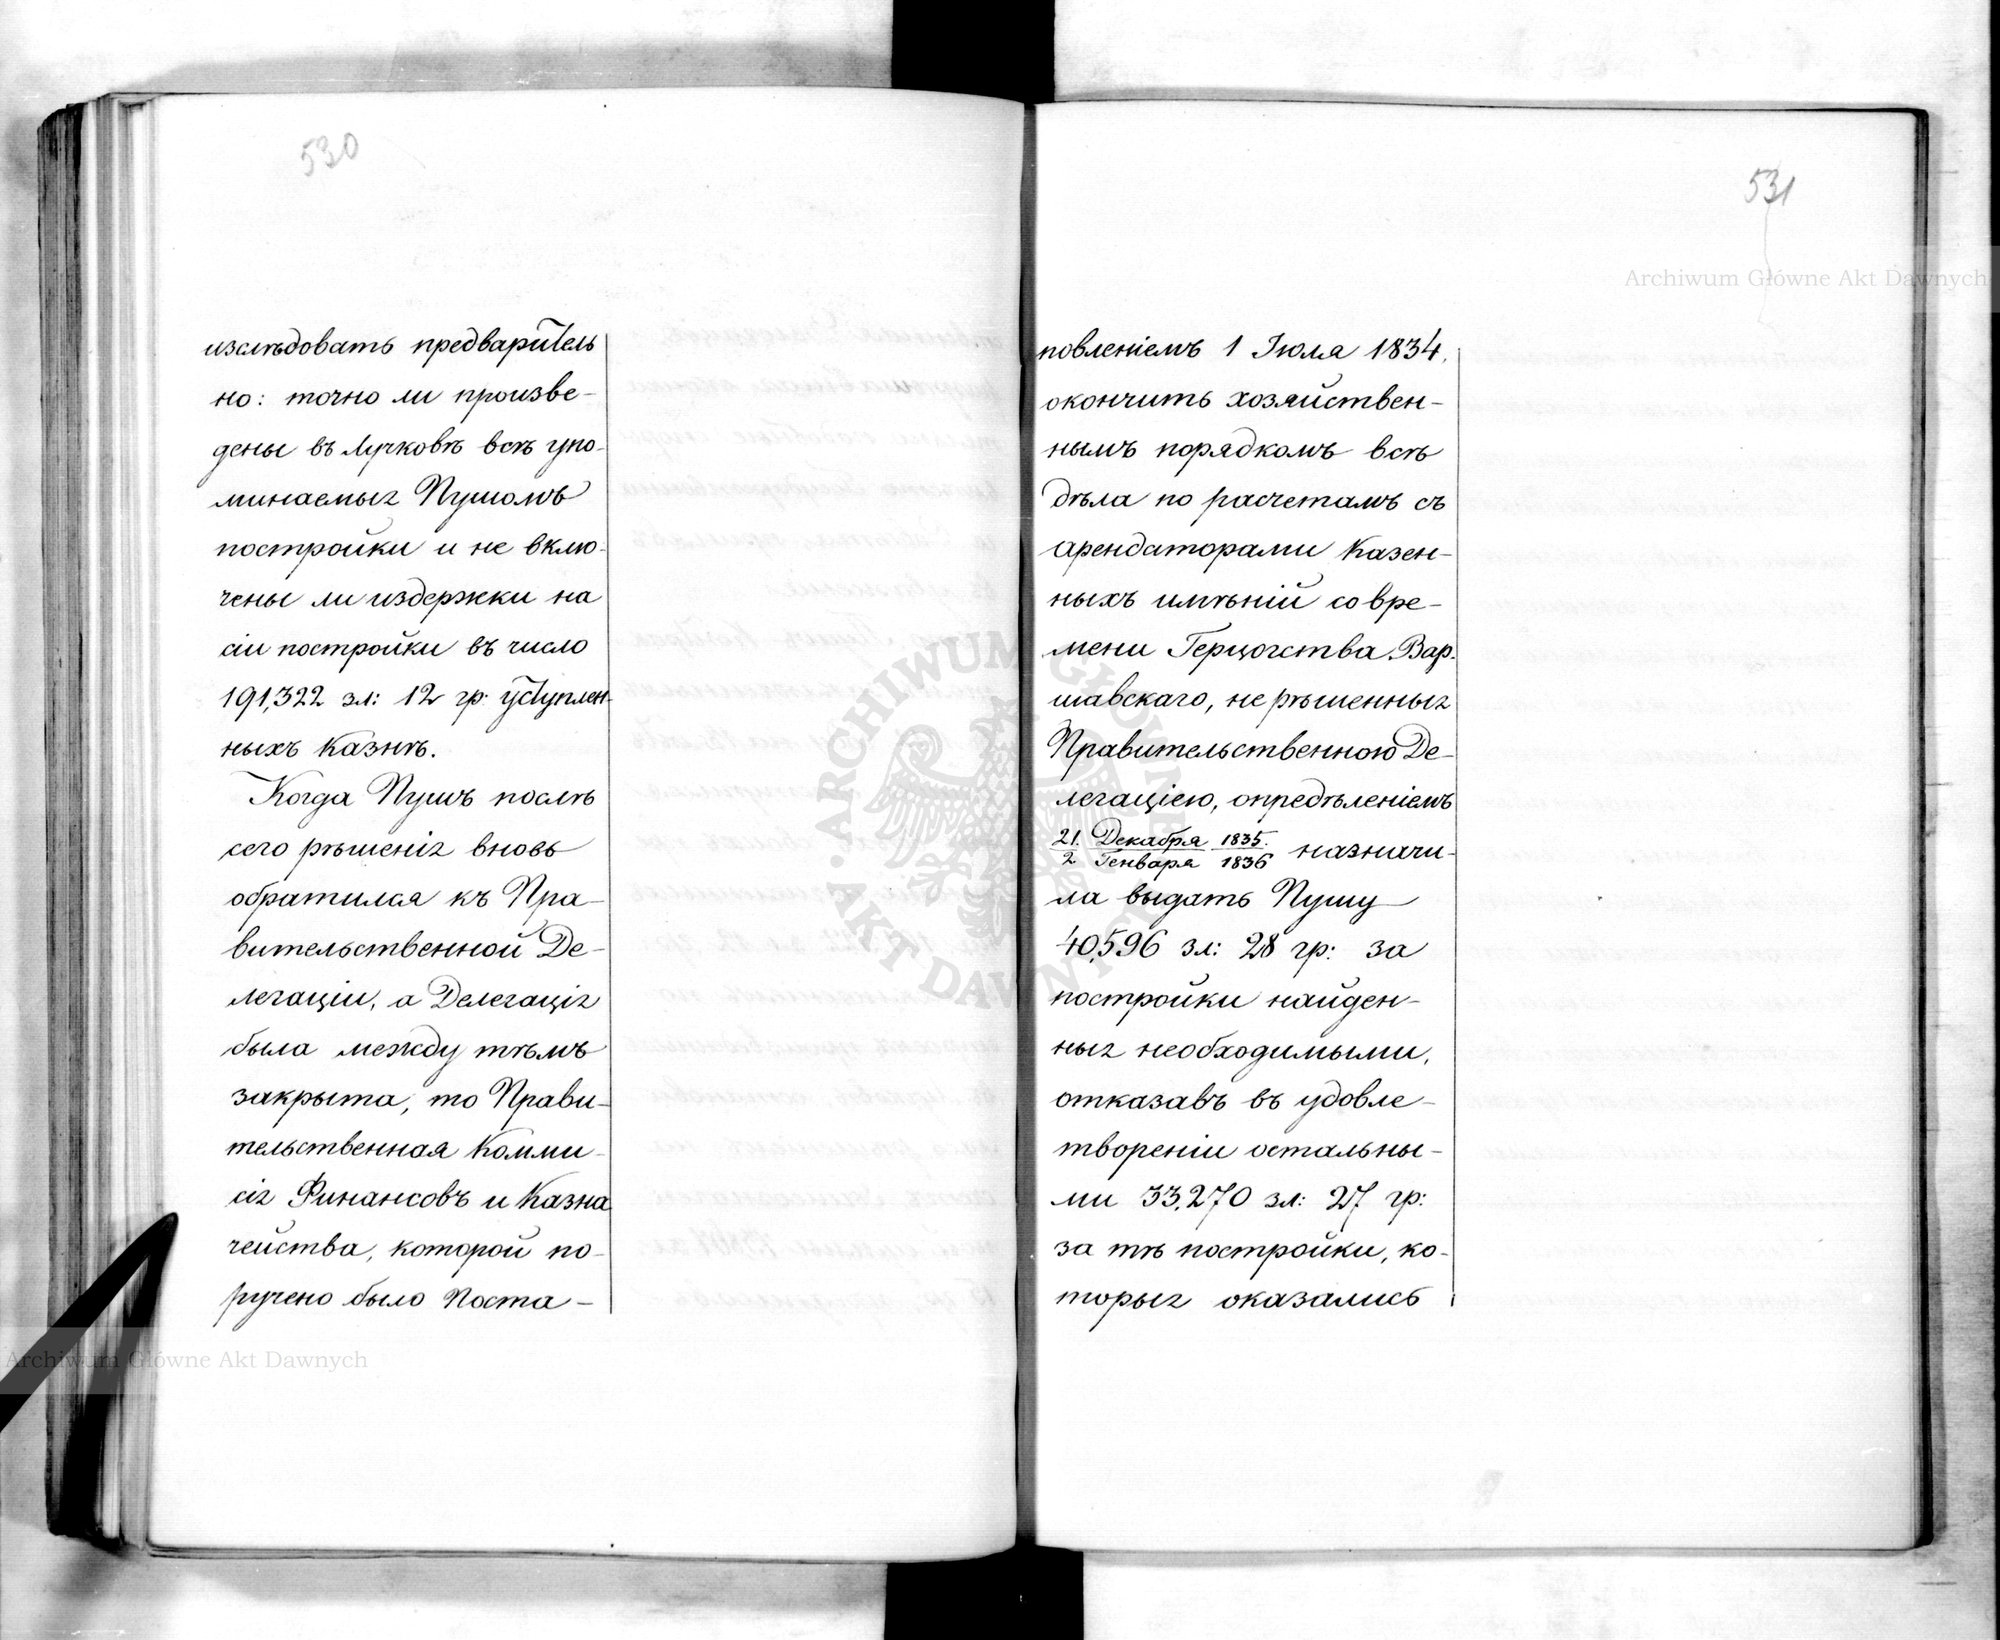 530
изслѣдовать предваритель
но: точно ли произве-
дены въ Лучковѣ всѣ упо-
минаемыя Пушомъ
постройки и не вклю-
чены ли издержки на
сіи постройки въ число
191,322 зл: 12 гр: уступлен-
ныхъ Казнѣ.
Когда Пушъ послѣ
сего рѣшенія вновь
обратился къ Пра-
вительственной Де-
легаціи, а Делегація
была между тѣмъ
закрыта, то Прави-
тельственная Комми-
сія Финансовъ и Казна
чейства, которой по-
ручено было Поста-
531
новленіемъ 1 Іюля 1834.
окончить хозяйствен-
нымъ порядкомъ всѣ
дѣла по расчетамъ съ
арендаторами Казен-
ныхъ имѣній со вре-
мени Герцогства Вар-
шавскаго, не рѣшенныя
Правительственною Де-
легаціею, опредѣленіемъ
21. Декабря 1835.
2 Генваря 1836 назначи-
ла выдать Пушу
40,596 зл: 28 гр: за
постройки найден-
ныя необходимыми,
отказавъ въ удовле-
твореніи остальны-
ми 33,270 зл: 27 гр:
за тѣ постройки, ко-
торыя оказались
Archiwum Główne Akt Dawnych
ARCHIWUM GŁÓWNE AKT DAWNYCH
Archiwum Główne Akt Dawnych